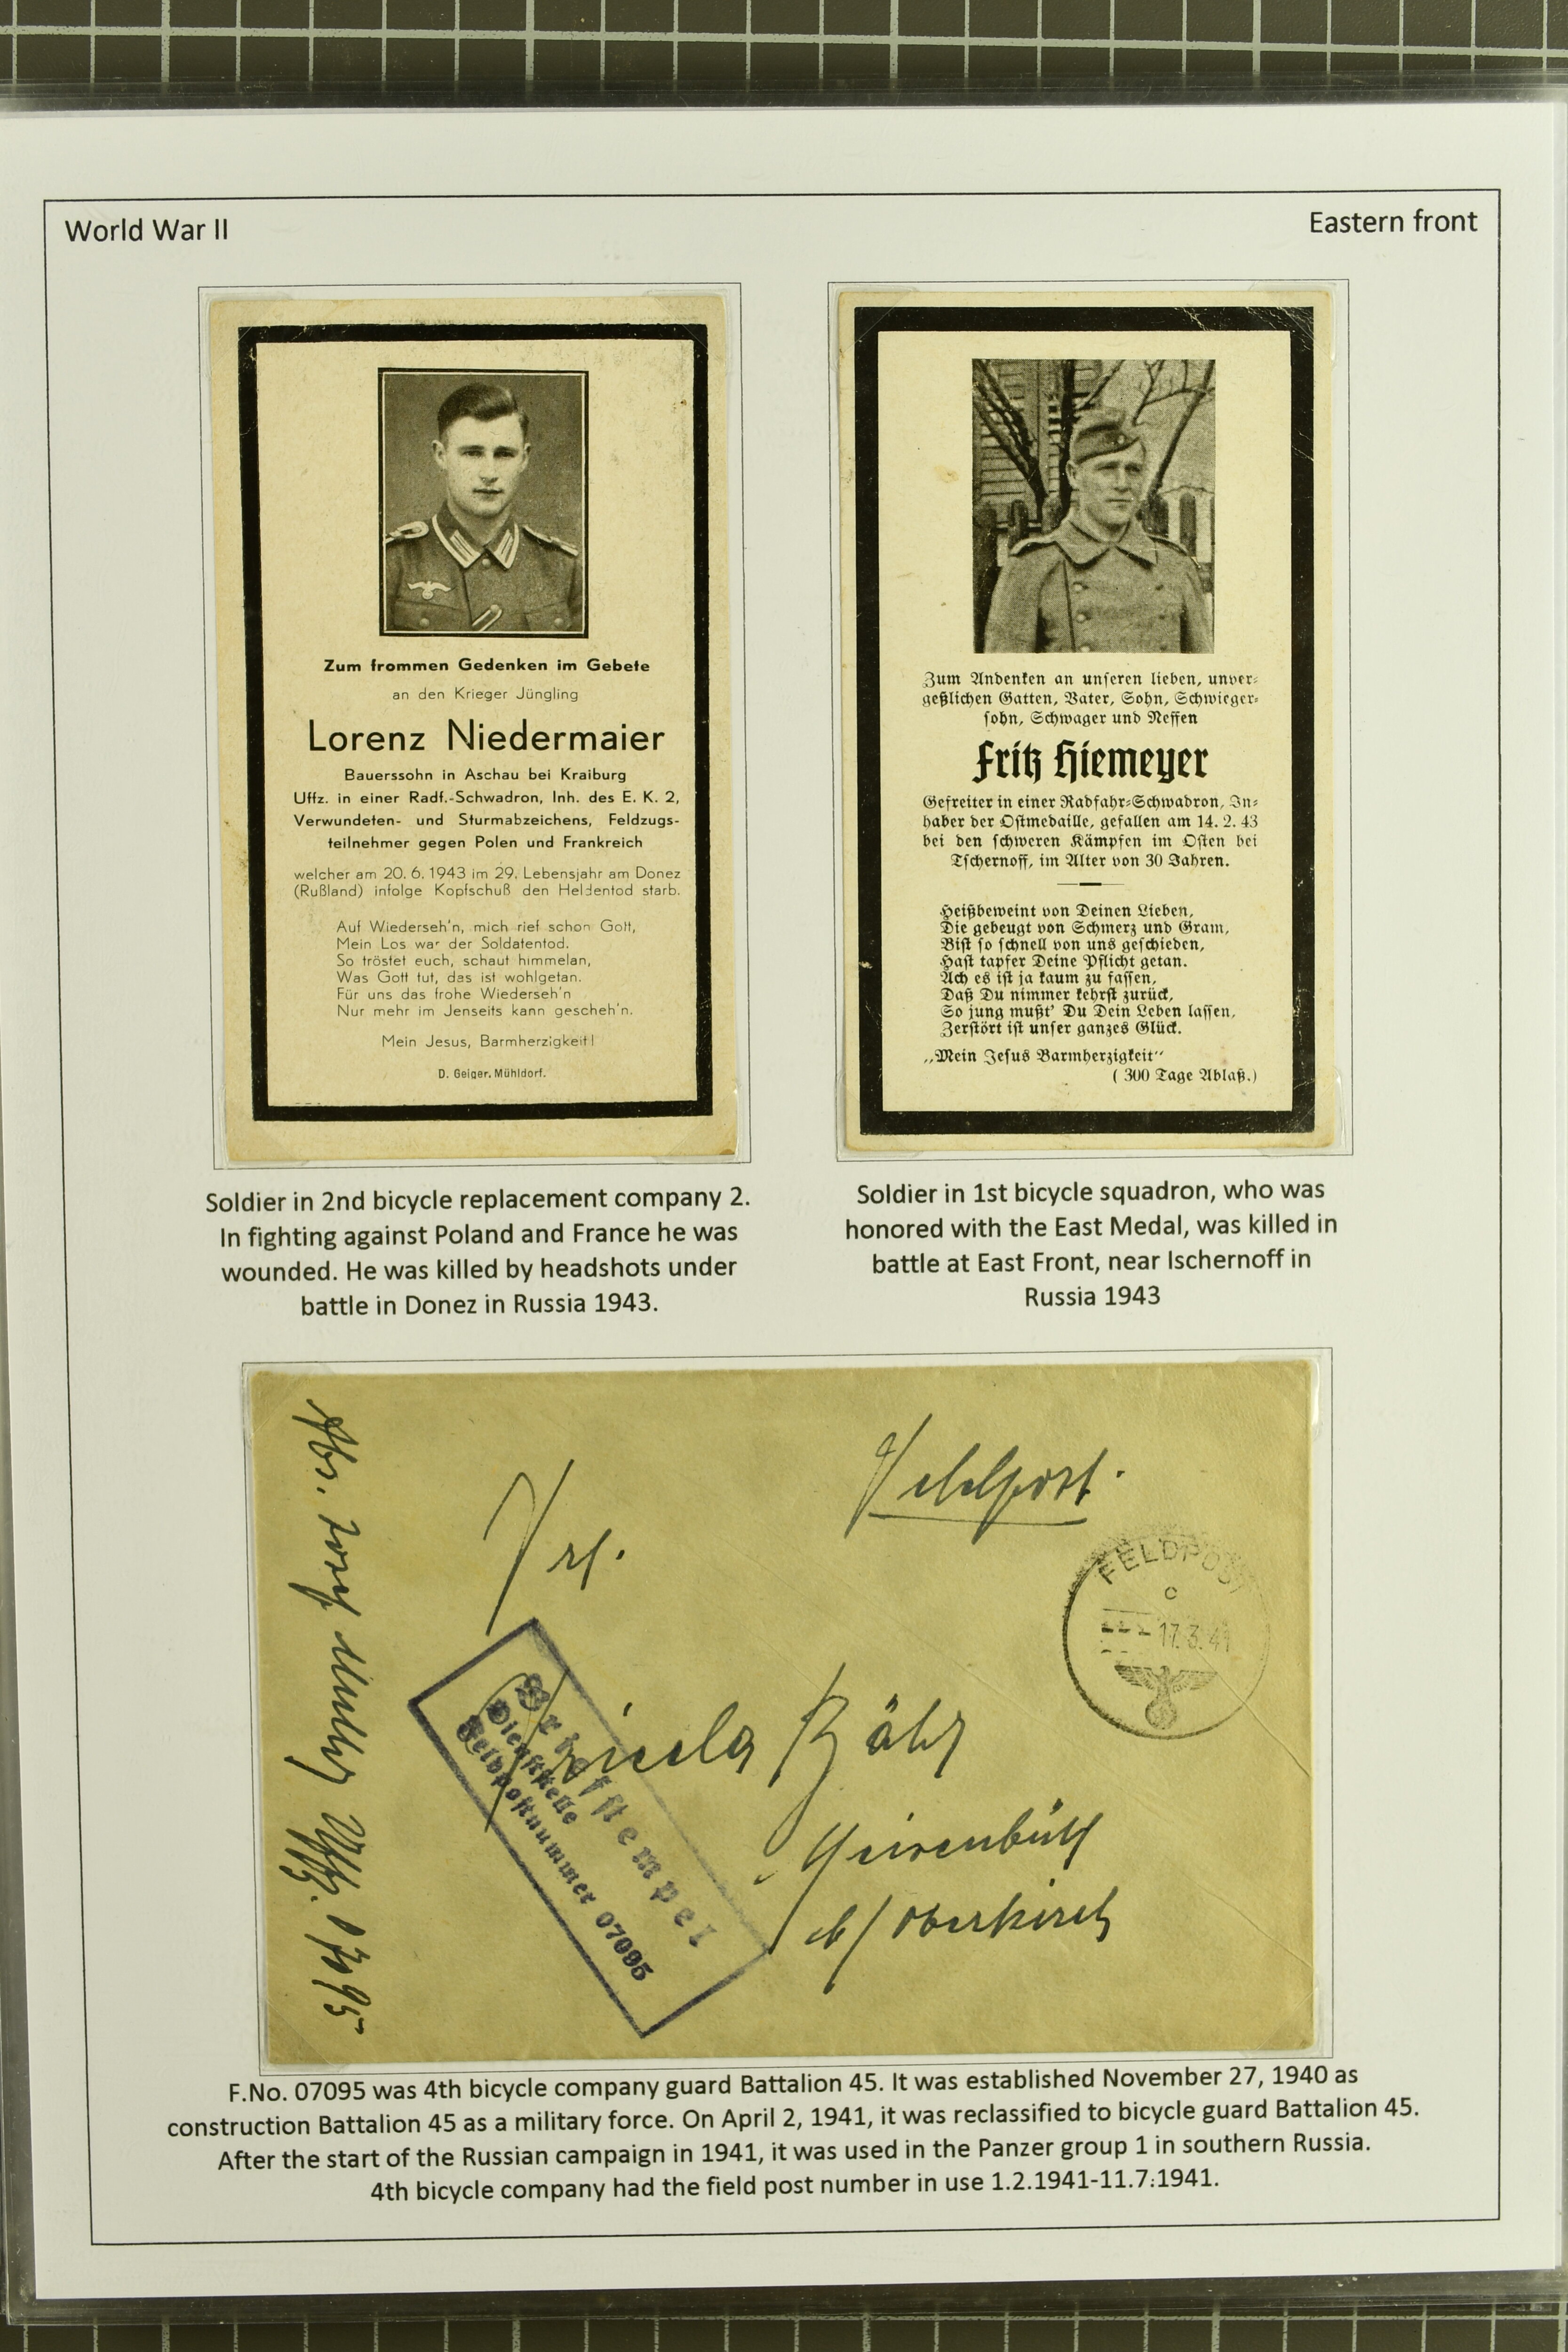 World War II
Eastern front
Zum frommen Gedenken im Gebete
an den Krieger Jüngling
Lorenz Niedermaier
Bauerssohn in Aschau bei Kraiburg
Uffz. in einer Radf.-Schwadron, Inh. des E. K. 2,
Verwundeten- und Sturmabzeichens, Feldzugs-
teilnehmer gegen Polen und Frankreich
welcher am 20. 6. 1943 im 29. Lebensjahr am Donez
(Rußland) infolge Kopfschuß den Heldentod starb.
Auf Wiederseh'n, mich rief schon Gott,
Mein Los war der Soldatentod.
So tröstet euch, schaut himmelan,
Was Gott tut, das ist wohlgetan.
Für uns das frohe Wiederseh'n
Nur mehr im Jenseits kann gescheh'n.
Mein Jesus, Barmherzigkeit!
D. Geiger, Mühldorf.
Zum Andenken an unseren lieben, unver-
geßlichen Gatten, Vater, Sohn, Schwieger-
sohn, Schwager und Neffen
Fritz Hiemeyer
Gefreiter in einer Radfahr-Schwadron, In-
haber der Ostmedaille, gefallen am 14. 2. 43
bei den schweren Kämpfen im Osten bei
Tschernoff, im Alter von 30 Jahren.
Heißbeweint von Deinen Lieben,
Die gebeugt von Schmerz und Gram,
Bist so schnell von uns geschieden,
Hast tapfer Deine Pflicht getan.
Ach es ist ja kaum zu fassen,
Daß Du nimmer kehrst zurück,
So jung mußt' Du Dein Leben lassen,
Zerstört ist unser ganzes Glück.
„Mein Jesus Barmherzigkeit“
( 300 Tage Ablaß.)
Soldier in 2nd bicycle replacement company 2.
In fighting against Poland and France he was
wounded. He was killed by headshots under
battle in Donez in Russia 1943.
Soldier in 1st bicycle squadron, who was
honored with the East Medal, was killed in
battle at East Front, near Ischernoff in
Russia 1943
Feldpost.
Frl.
FELDPOST
c
17.3.41
Bähr
b/ Oberkirch
Briefstempel
Dienststelle
Feldpostnummer 07095
Abs. Josef Uffz. 07095
F.No. 07095 was 4th bicycle company guard Battalion 45. It was established November 27, 1940 as
construction Battalion 45 as a military force. On April 2, 1941, it was reclassified to bicycle guard Battalion 45.
After the start of the Russian campaign in 1941, it was used in the Panzer group 1 in southern Russia.
4th bicycle company had the field post number in use 1.2.1941-11.7.1941.